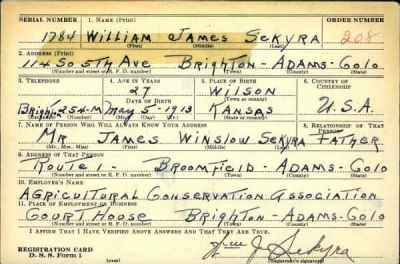 SERIAL NUMBER 1. NAME (Print) ORDER NUMBER
1784 William James Sekyra 208
(First) (Middle) (Last)
2. ADDRESS (Print)
114 So 5th Ave Brighton - Adams - Colo
(Number and street or R. F. D. number) (Town) (County) (State)
3. TELEPHONE 4. AGE IN YEARS 5. PLACE OF BIRTH 6. COUNTRY OF CITIZENSHIP
27 Wilson
DATE OF BIRTH (Town or county)
Brighton 254-M May 5-1913 Kansas U.S.A.
7. NAME OF PERSON WHO WILL ALWAYS KNOW YOUR ADDRESS 8. RELATIONSHIP OF THAT PERSON
Mr James Winslow Sekyra Father
(Mr., Mrs., Miss) (First) (Middle) (Last)
9. ADDRESS OF THAT PERSON
Route 1 Broomfield - Adams - Colo
(Number and street or R. F. D. number) (Town) (County) (State)
10. EMPLOYER'S NAME
Agricultural Conservation Association
11. PLACE OF EMPLOYMENT OR BUSINESS
Court Hoose Brighton - Adams - Colo
(Number and street or R. F. D. number) (Town) (County) (State)
I AFFIRM THAT I HAVE VERIFIED ABOVE ANSWERS AND THAT THEY ARE TRUE.
REGISTRATION CARD
D. S. S. Form 1 (over) Wm J. Sekyra
(Registrant's signature)